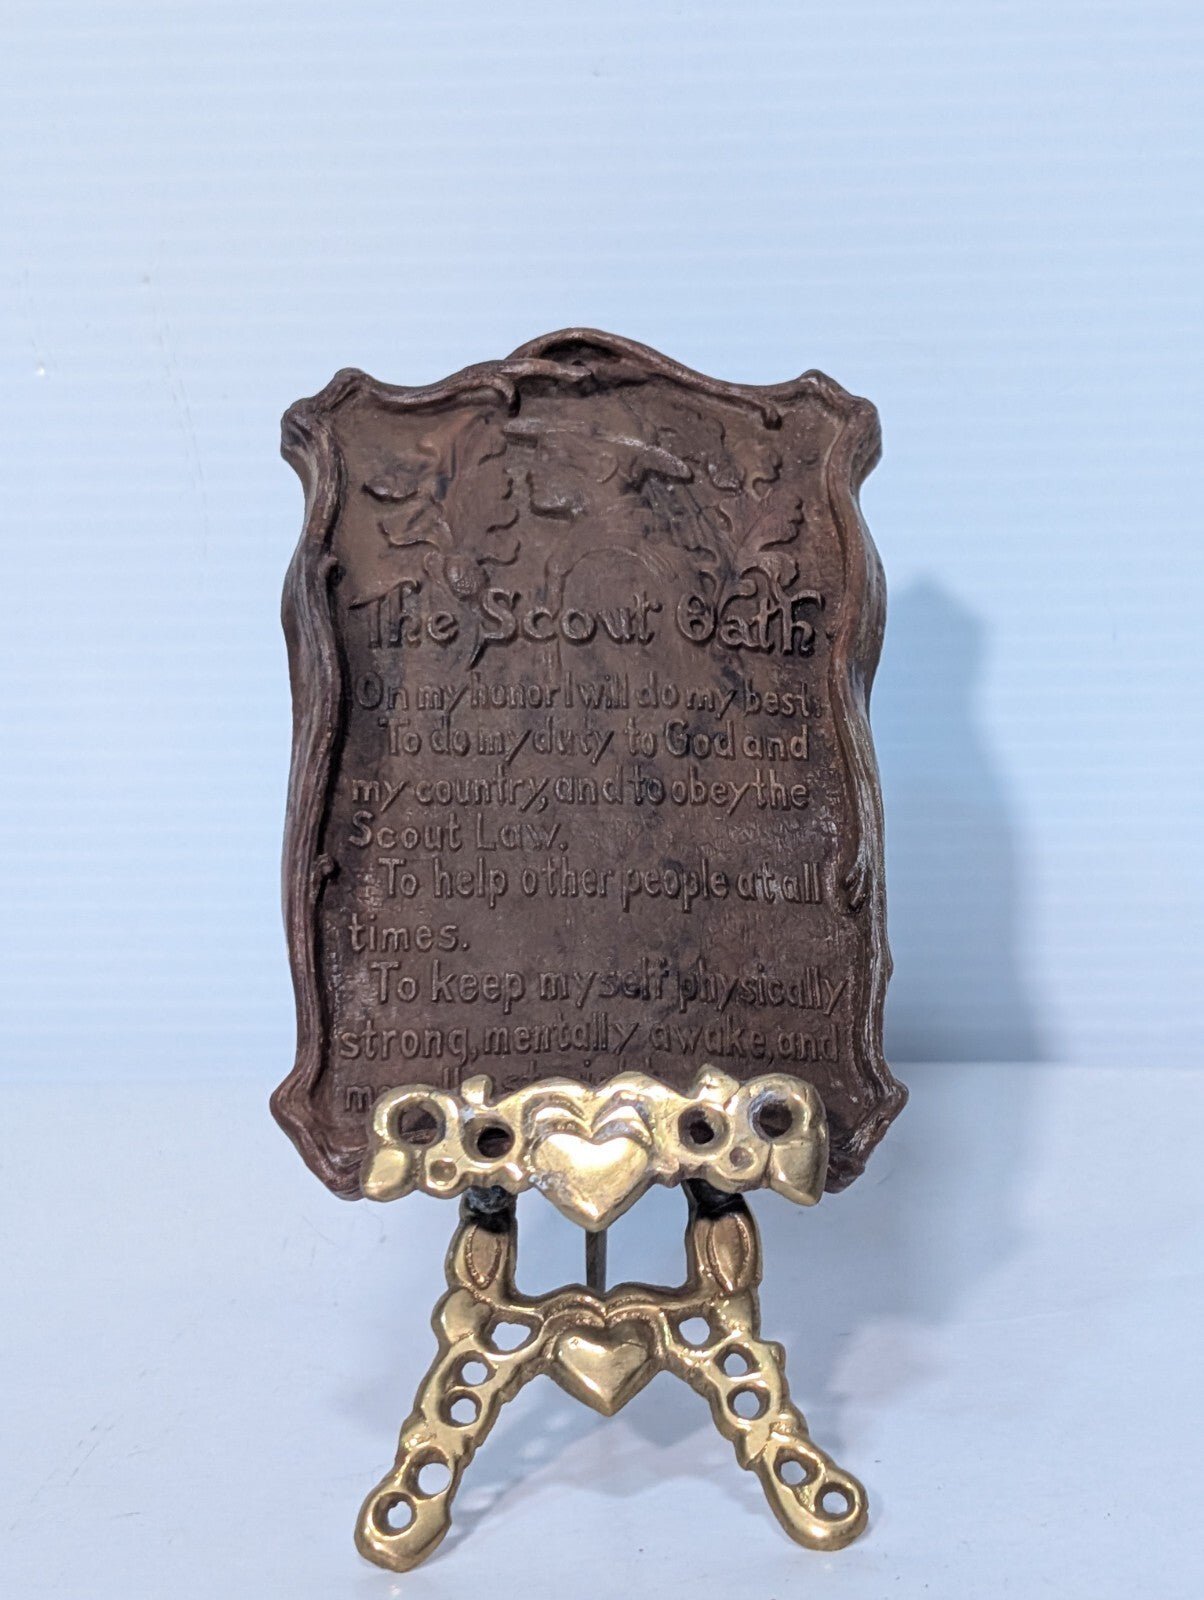 The Scout Oath
On my honor I will do my best:
To do my duty to God and
my country, and to obey the
Scout Law.
To help other people at all
times.
To keep myself physically
strong, mentally awake, and